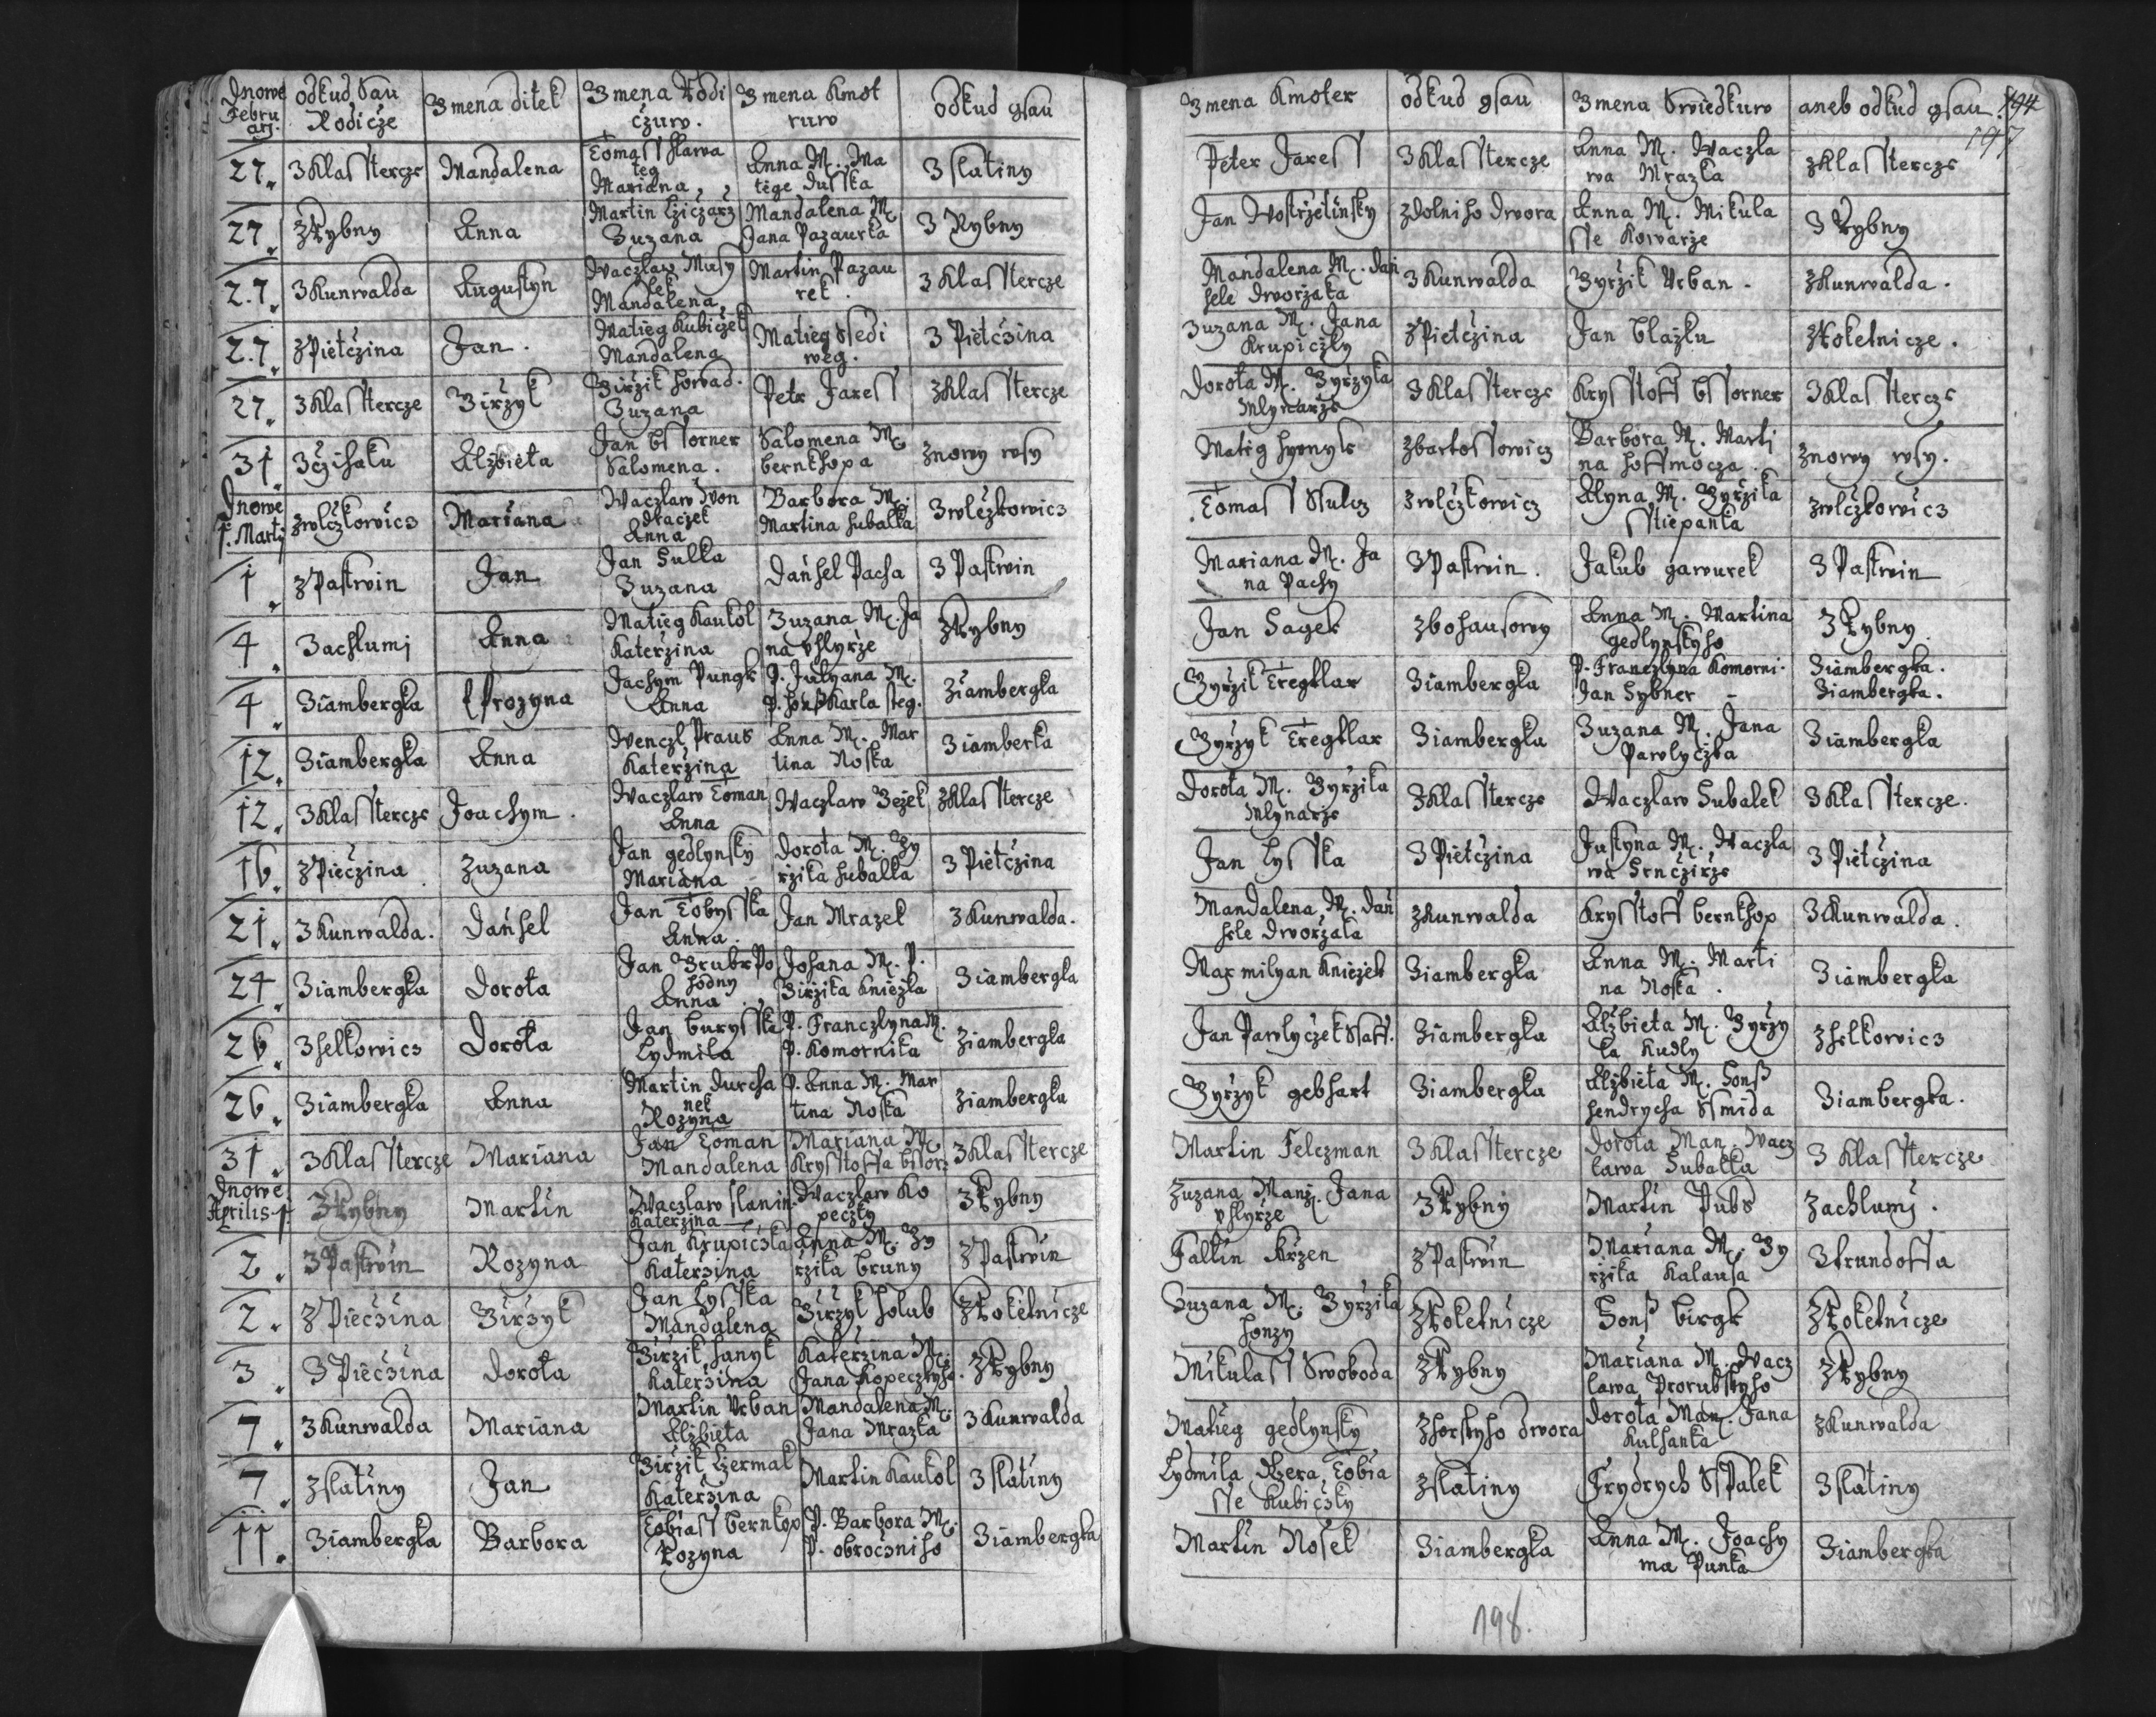 Dnowe Febru arj. odkud Sau Rodicże Zmena ditek Zmena Rodi cżuw. Zmena Kmot ruw Odkud gsau
27. Z Klassstercze Mandalena Tomass Slawa teg Mariana Anna M. Ma tege Dusska Z Slatiny
27. Z Rybny Anna Martin Cziczarz Zuzana Mandalena M. Jana Pazaurka Z Rybny
27. Z Kunwalda Augustyn Waczlaw Musy lek Mandalena Martin Pazau rek. Z Klasstercze
27. Z Pietczina Jan. Matieg Kubiczek Mandalena Matieg Ssedi weg. Z Pietczina
27. Z Klasstercze Zirzyk Zirzik howad. Zuzana Petr Jaress Z Klasstercze
31. Z Czihaku Alzbieta Jan Essorner Salomena. Salomena M. bernkhopa Z nowy wsy
Dnowe 1. Martj Z wlczkowicz Mariana Waczlaw Won draczek Anna Barbora M. Martina hubalka Z wlczkowicz
1. Z Pastwin Jan Jan Sulka Zuzana Dańhel Pacha Z Pastwin
4. Zachlumj Anna Matieg Kaukol Katerzina Zuzana M. Ja na Uhlyrze Z Rybny
4. Ziambergka Rozyna Jachym Pungk Anna P. Julyana M. P. honß Karla steg. Ziambergka
12. Ziambergka Anna Wenczl Praus Katerzina Anna M. Mar tina Noska Ziamberka
12. Z Klasstercze Joachym. Waczlaw Toman Anna Waczlaw Zezek Z Klasstercze
16. Z Pieczina Zuzana Jan gedlynsky Mariana Dorota M. Zy rzika hubalka Z Pietczina
21. Z Kunwalda. Dańhel Jan Tobysska Anna. Jan Mrazek Z Kunwalda.
24. Ziambergka Dorota Jan Zrubr Po hodny Anna Johana M. P. Zirzika Kniezka Ziambergka
26. Z helkowicz Dorota Jan Burysska Lydmila P. Franczlyna M. P. Komornika Ziambergka
26. Ziambergka Anna Martin Durcha nek Rozyna P. Anna M. Mar tina Noska Ziambergka
31. Z Klasstercze Mariana Jan Toman Mandalena Mariana M. Krysstoffa Essorz Z Klasstercze
Dnowe Aprilis 1. Z Rybny Martin Waczlaw Slanin Katerzina Waczlaw Ko peczky Z Rybny
2. Z Pastwin Rozyna Jan Krupiczka Katerzina Anna M. Zy rzika bruny Z Pastwin
2. Z Pieczina Zirzyk Jan Lysska Mandalena Zirzyk holub Z Roketnicze
3. Z Pieczina Dorota Zirzik hanyk Katerzina Katerzina M. Jana Kopeczkyho. Z Rybny
7. Z Kunwalda Mariana Martin Urban Alzbieta Mandalena M. Jana Mrazka Z Kunwalda
7. Z Slatiny Jan Zirzik Czermak Katerzina Martin Kaukol Z Slatiny
11. Ziambergka Barbora Tobiass bernkop Rozyna P. Barbora M. P. obroczniho Ziambergka
Zmena Kmoter odkud gsau Zmena Swiedkuw aneb odkud gsau. 194
197
Peter Jaress Z Klasstercze Anna M. Waczla wa Mrazka Z Klasstercze
Jan Wostrzetinsky Z dolniho dwora Anna M. Mikula sse Kowarze Z Rybny
Mandalena M. Dań hele Dworzaka Z Kunwalda Zyrzik Urban. Z Kunwalda.
Zuzana M. Jana Krupiczky Z Pietczina Jan Blazku Z Roketnicze.
Dorota M. Zyrzyka Mlynarze Z Klasstercze Krysstoff Essorner Z Klasstercze
Matig hynyk Z bartossowicz Barbora M. Marti na hoffmocza. Z nowy wsy.
Tomass Ssulcz Z wlczkowicz Alyna M. Zyrzika Sstiepanka Z wlczkowicz
Mariana M. Ja na Pachy Z Pastwin. Jakub gawurek Z Pastwin
Jan Sager Z bohausowy Anna M. Martina gedlynskyho Z Rybny
Zyrzik Tregklar Ziambergka P. Franczlyna Komorni. Jan Hybner Ziambergka. Ziambergka.
Zyrzyk Tregklar Ziambergka Zuzana M. Jana Pawlyczka Ziambergka
Dorota M. Zyrzika Mlynarze Z Klasstercze Waczlaw Hubalek Z Klasstercze.
Jan Lysska Z Pietczina Justyna M. Waczla wa Hrnczirze Z Pietczina
Mandalena M. Dań hele Dworzaka Z Kunwalda Krysstoff bernkhop Z Kunwalda.
Maxmilyan Kniezek Ziambergka Anna M. Marti na Noska. Ziambergka
Jan Pawlyczek Ssaff. Ziambergka Alzbieta M. Zyrzy ka Kudly Z helkowicz
Zyrzyk gebhart Ziambergka Alzbieta M. Honß hendrycha Ssmida Ziambergka.
Martin Felczman Z Klasstercze Dorota Man. Wacz lawa Hubalka Z Klasstercze
Zuzana Manz. Jana Uhlyrze Z Rybny Martin Pubs Zachlumj.
Faltin Krzen Z Pastwin Mariana M. Zy rzika Kalausa Z trundorffa
Zuzana M. Zyrzika honzy Z Roketnicze Honß birgk Z Roketnicze
Mikulass Swoboda Z Rybny Mariana M. Wacz lawa Prorubskyho Z Rybny
Matieg gedlynsky Z horskyho dwora Dorota Man. Jana Kulhanka Z Kunwalda
Lydmila dzera Tobia sse Kubiczky Z Slatiny Frydrych Sspalek Z Slatiny
Martin Nosek Ziambergka Anna M. Joachy ma Punka Ziambergka
198.